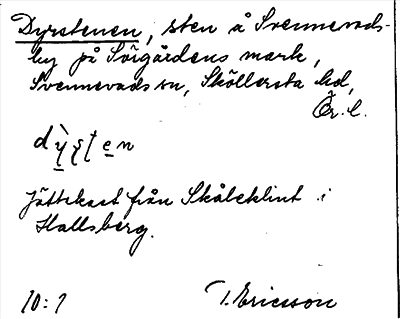 Dyrstenen, sten å Svennevads-
by på Sörgårdens mark,
Svennevads sn, Sköllersta hd,
Ör. l.
Jättekast från Skåleklint i
Hallsberg.
10:7 T. Ericsson